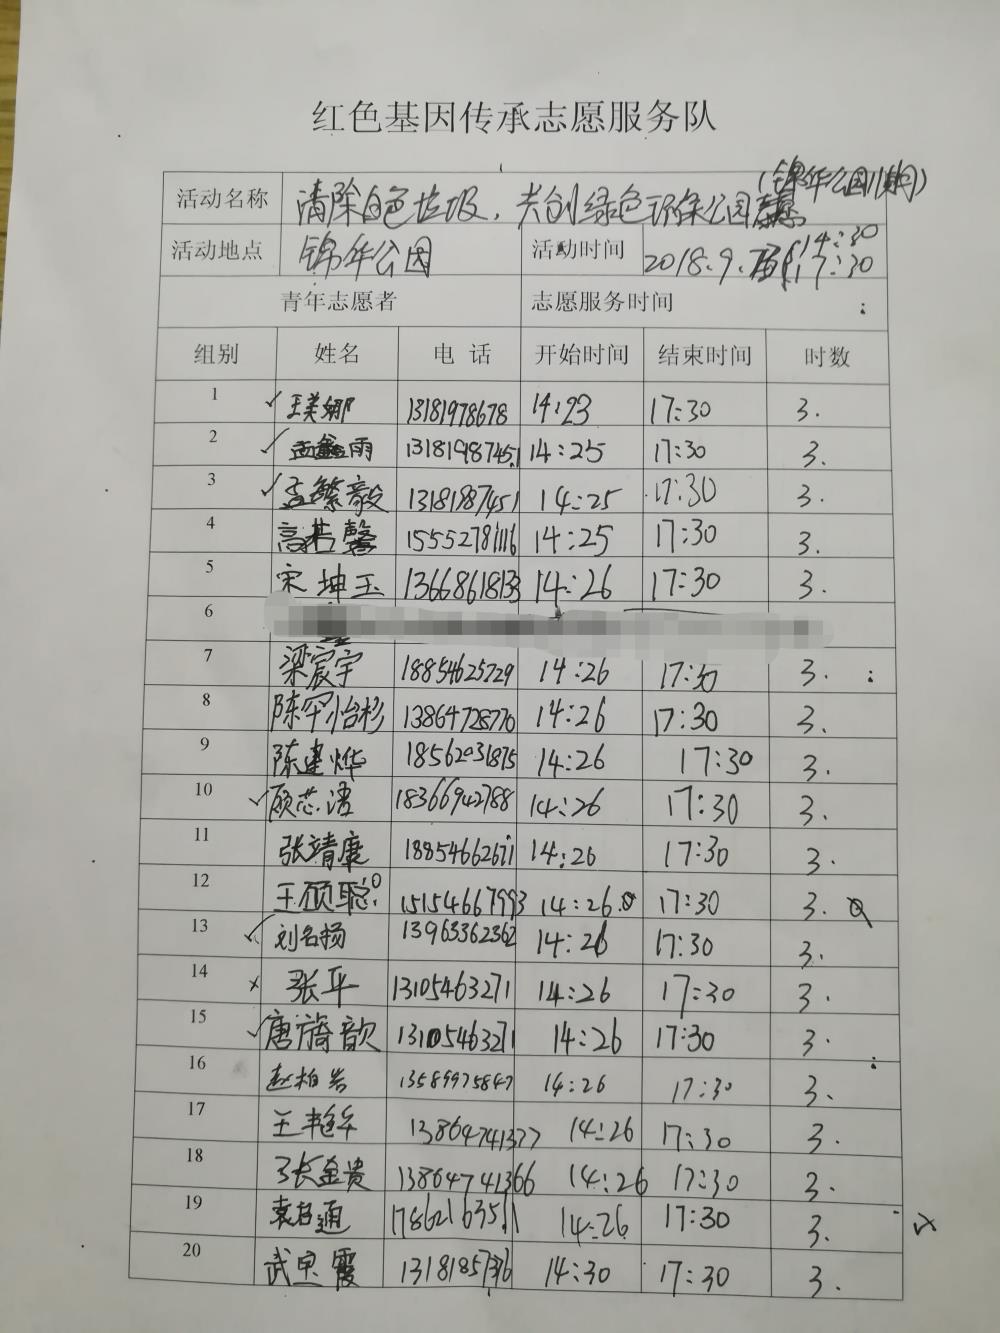 红色基因传承志愿服务队
(锦华公园
活动名称 清除白色垃圾,共创绿色环保公园
活动地点 锦华公园 活动时间 2018.9. 14:30 17:30
青年志愿者 志愿服务时间
组别 姓名 电话 开始时间 结束时间 时数
1 王美娜 13181978678 14:23 17:30 3.
2 孟鑫雨 14:25 17:30 3.
3 孟繁毅 14:25 17:30 3.
4 高若馨 14:25 17:30 3.
5 宋坤玉 13668618133 14:26 17:30 3.
6
7 梁宸宇 18854625729 14:26 17:30 3.
8 陈罕怡杉 13864728770 14:26 17:30 3.
9 陈建烨 18562031875 14:26 17:30 3.
10 顾芯语 18366942788 14:26 17:30 3.
11 张靖康 14:26 17:30 3.
12 王硕聪 15154667993 14:26 17:30 3.
13 刘名扬 13963362362 14:26 17:30 3.
14 张平 13105463271 14:26 17:30 3.
15 唐旖歆 13105463271 14:26 17:30 3.
16 赵柏岩 14:26 17:30 3.
17 王艳华 13864741377 14:26 17:30 3.
18 张金贵 13864741366 14:26 17:30 3.
19 14:26 17:30 3.
20 武里霞 14:30 17:30 3.